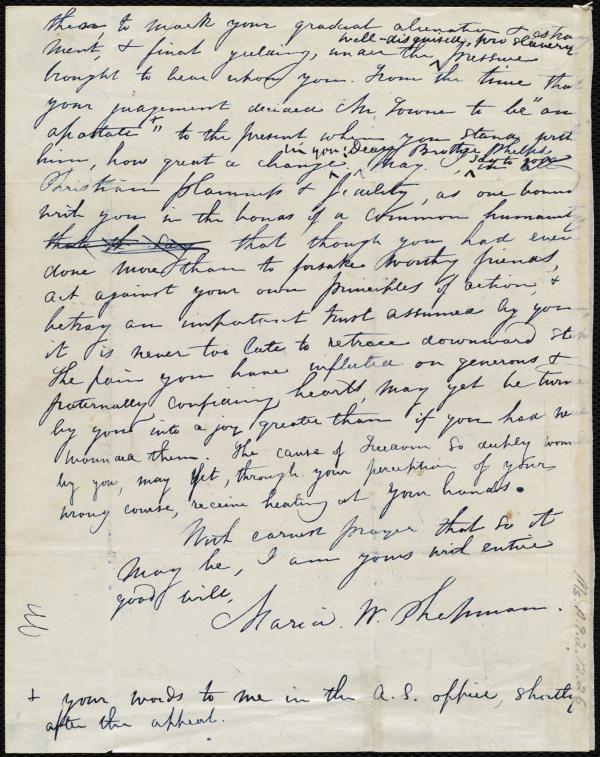 them, to mark your gradual alienation & estrange
ment, & final yielding, under the well-disguised, pro slavery pressure
brought to bear upon you. From the time that
your judgement decided Mr Towne to be "an
apostate +" to the present when you stand with
him, how great a change in you! Dear Brother Phelps, may I say to you in all
Christian plainness & fidelity, as one bound
with you in the bonds of a common humanity
that though you had even
done more than to forsake worthy friends,
act against your own principles of action, &
betray an important trust assumed by you
it is never too late to retrace downward ste
The pain you have inflicted on generous &
fraternally confiding hearts, may yet be turned
by you into a joy greater than if you had ne
wounded them. The cause of Freedom so deeply woun
by you, may yet, through your perception of your
wrong course, receive healing at your hands.
With earnest prayer that so it
may be, I am yours with entire
good will,
Maria W. Chapman.
+ your words to me in the A. S. office, shortly
after the appeal.
Ms. A.9.2.12.26